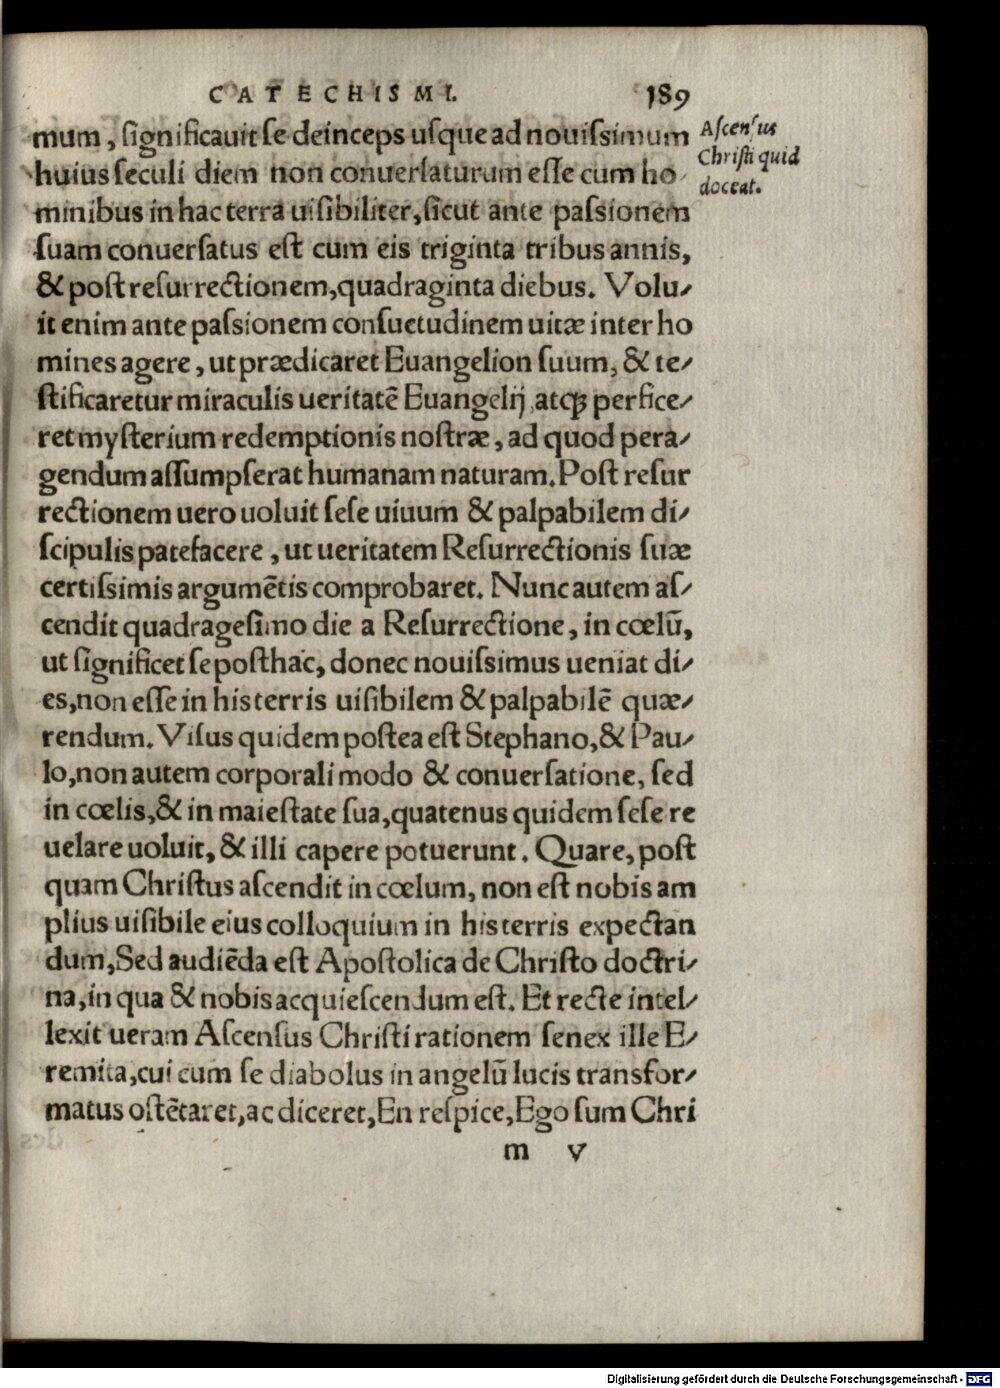 CATECHISMI. 189
mum, ſignificauit ſe deinceps uſque ad nouiſsimum
huius ſeculi diem non conuerſaturum eſſe cum ho
minibus in hac terra uiſibiliter, ſicut ante paſsionem
ſuam conuerſatus eſt cum eis triginta tribus annis,
& poſt reſurrectionem, quadraginta diebus. Volu-
it enim ante paſsionem conſuetudinem uitæ inter ho
mines agere, ut prædicaret Euangelion ſuum, & te-
ſtificaretur miraculis ueritatē Euangelij, atqꝫ perfice-
ret myſterium redemptionis noſtræ, ad quod pera-
gendum aſſumpſerat humanam naturam. Poſt reſur
rectionem uero uoluit ſeſe uiuum & palpabilem di-
ſcipulis patefacere, ut ueritatem Reſurrectionis ſuæ
certiſsimis argumētis comprobaret. Nunc autem aſ-
cendit quadrageſimo die a Reſurrectione, in cœlū,
ut ſignificet ſe poſthac, donec nouiſsimus ueniat di-
es, non eſſe in his terris uiſibilem & palpabilē quæ-
rendum. Viſus quidem poſtea eſt Stephano, & Pau-
lo, non autem corporali modo & conuerſatione, ſed
in cœlis, & in maieſtate ſua, quatenus quidem ſeſe re
uelare uoluit, & illi capere potuerunt. Quare, poſt
quam Chriſtus aſcendit in cœlum, non eſt nobis am
plius uiſibile eius colloquium in his terris expectan
dum, Sed audiēda eſt Apoſtolica de Chriſto doctri-
na, in qua & nobis acquieſcendum eſt. Et recte intel-
lexit ueram Aſcenſus Chriſti rationem ſenex ille E-
remita, cui cum ſe diabolus in angelū lucis transfor-
matus oſtētaret, ac diceret, En reſpice, Ego ſum Chri
m v
Aſcenſus
Chriſti quid
doceat.
Digitalisierung gefördert durch die Deutsche Forschungsgemeinschaft - DFG